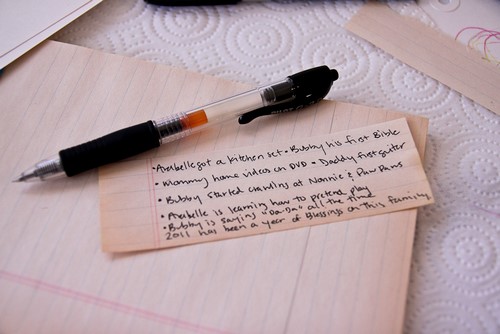 • Arabelle got a kitchen set • Bubby his first Bible
• Mommy home videos on DVD - Daddy first guitar
• Bubby started crawling at Nannie & Paw Paws
• Arabelle is learning how to pretend play
• Bubby is saying "Da-Da" all the time
2011 has been a year of Blessings on this family